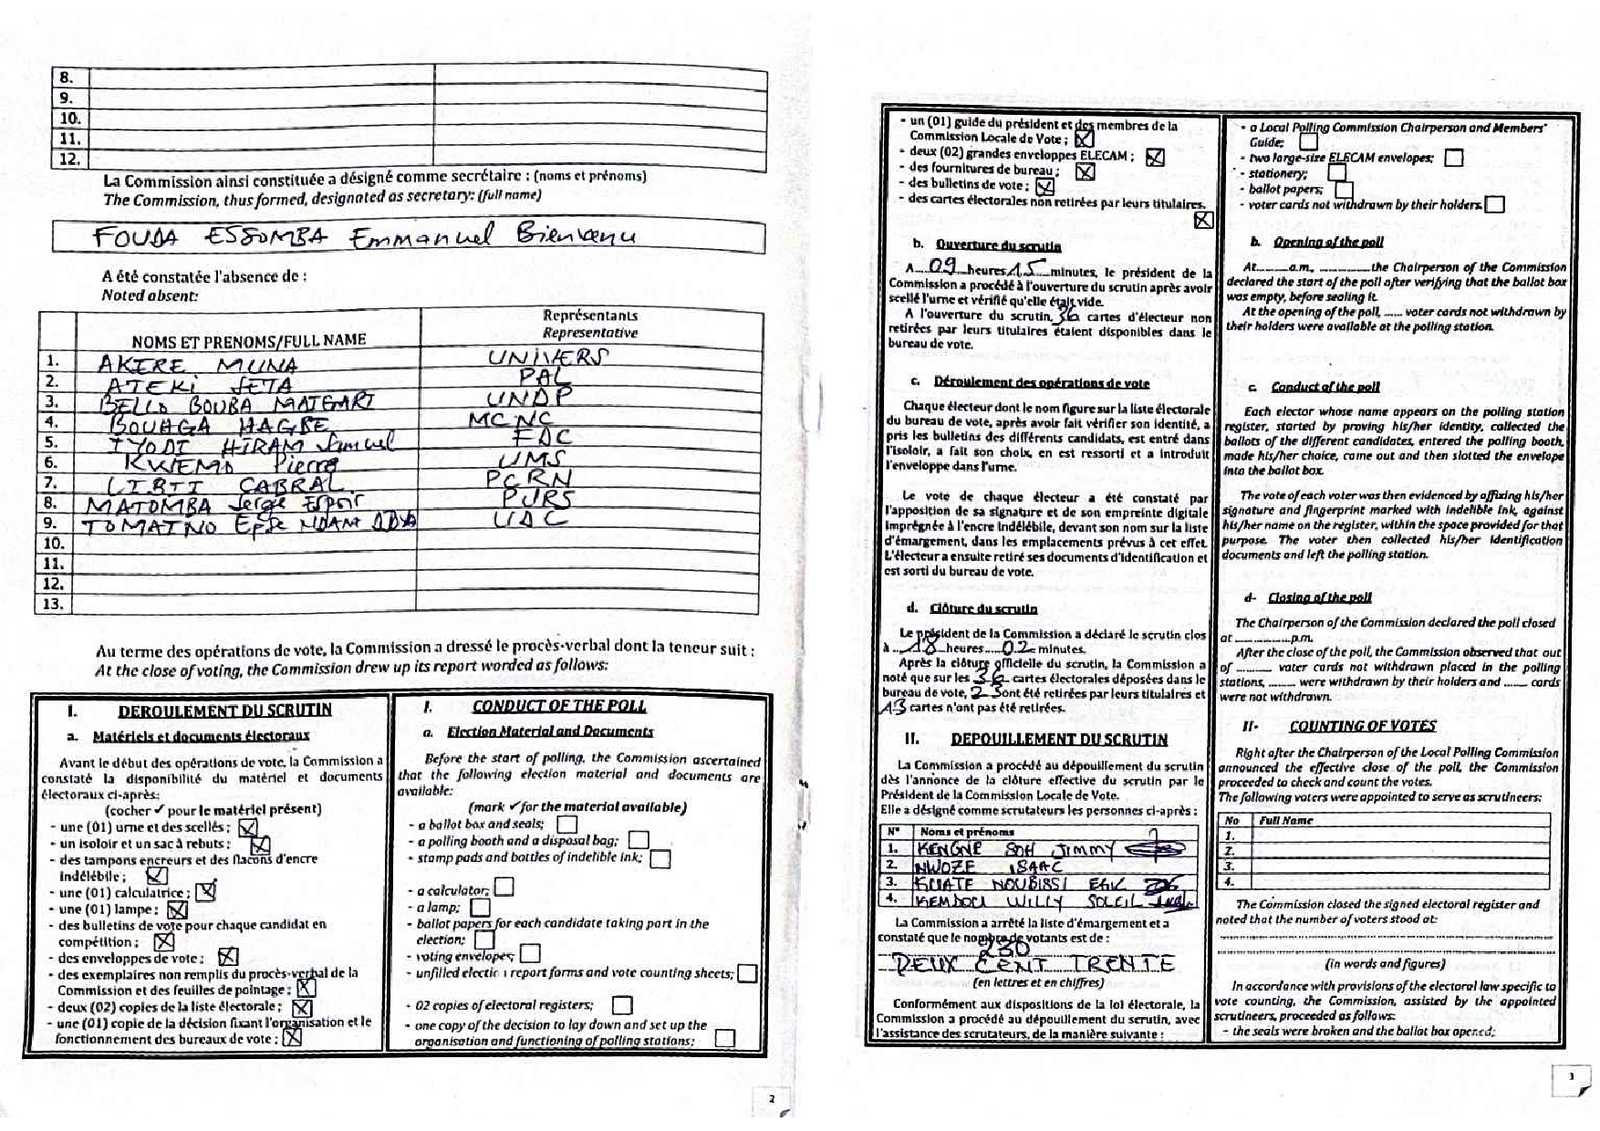 8.
9.
10.
11.
12.
La Commission ainsi constituée a désigné comme secrétaire : (noms et prénoms)
The Commission, thus formed, designated as secretary: (full name)
FOUDA ESSOMBA Emmanuel Bienvenu
A été constatée l'absence de :
Noted absent:
NOMS ET PRENOMS/FULL NAME
Représentants
Representative
1. AKERE MUNA UNIVERS
2. ATEKI SETA PAL
3. BELLO BOUBA MAIGARI UNDP
4. BOUHGA HAGBE MCNC
5. IYODI HIRAM Samuel FDC
6. KWEMO Pierre UMS
7. LIBII CABRAL PCRN
8. MATOMBA Serge Espoir PURS
9. TOMAINO UDC
10.
11.
12.
13.
Au terme des opérations de vote, la Commission a dressé le procès-verbal dont la teneur suit :
At the close of voting, the Commission drew up its report worded as follows:
I. DEROULEMENT DU SCRUTIN
a. Matériels et documents électoraux
Avant le début des opérations de vote, la Commission a
constaté la disponibilité du matériel et documents
électoraux ci-après:
(cocher ✓ pour le matériel présent)
- une (01) urne et des scellés ;
- un isoloir et un sac à rebuts ;
- des tampons encreurs et des flacons d'encre
indélébile ;
- une (01) calculatrice ;
- une (01) lampe ;
- des bulletins de vote pour chaque candidat en
compétition ;
- des enveloppes de vote ;
- des exemplaires non remplis du procès-verbal de la
Commission et des feuilles de pointage ;
- deux (02) copies de la liste électorale ;
- une (01) copie de la décision fixant l'organisation et le
fonctionnement des bureaux de vote ;
I. CONDUCT OF THE POLL
a. Election Material and Documents
Before the start of polling, the Commission ascertained
that the following election material and documents are
available:
(mark ✓ for the material available)
- a ballot box and seals;
- a polling booth and a disposal bag;
- stamp pads and bottles of indelible ink;
- a calculator;
- a lamp;
- ballot papers for each candidate taking part in the
election;
- voting envelopes;
- unfilled election report forms and vote counting sheets;
- 02 copies of electoral registers;
- one copy of the decision to lay down and set up the
organisation and functioning of polling stations;
2
- un (01) guide du président et des membres de la
Commission Locale de Vote ;
- deux (02) grandes enveloppes ELECAM ;
- des fournitures de bureau ;
- des bulletins de vote ;
- des cartes électorales non retirées par leurs titulaires.
b. Ouverture du scrutin
A 09 heures 15 minutes, le président de la
Commission a procédé à l'ouverture du scrutin après avoir
scellé l'urne et vérifié qu'elle était vide.
A l'ouverture du scrutin, 36 cartes d'électeur non
retirées par leurs titulaires étaient disponibles dans le
bureau de vote.
c. Déroulement des opérations de vote
Chaque électeur dont le nom figure sur la liste électorale
du bureau de vote, après avoir fait vérifier son identité, a
pris les bulletins des différents candidats, est entré dans
l'isoloir, a fait son choix, en est ressorti et a introduit
l'enveloppe dans l'urne.
Le vote de chaque électeur a été constaté par
l'apposition de sa signature et de son empreinte digitale
imprégnée à l'encre indélébile, devant son nom sur la liste
d'émargement, dans les emplacements prévus à cet effet.
L'électeur a ensuite retiré ses documents d'identification et
est sorti du bureau de vote.
d. Clôture du scrutin
Le président de la Commission a déclaré le scrutin clos
à 18 heures 02 minutes.
Après la clôture officielle du scrutin, la Commission a
noté que sur les 36 cartes électorales déposées dans le
bureau de vote, 23 ont été retirées par leurs titulaires et
13 cartes n'ont pas été retirées.
II. DEPOUILLEMENT DU SCRUTIN
La Commission a procédé au dépouillement du scrutin
dès l'annonce de la clôture effective du scrutin par le
Président de la Commission Locale de Vote.
Elle a désigné comme scrutateurs les personnes ci-après :
N° Noms et prénoms
1. KENGNE SOH JIMMY
2. NWOZE ISAAC
3. KUATE NOUBISSI ERIC
4. KEMDOU WILLY SOLEIL
La Commission a arrêté la liste d'émargement et a
constaté que le nombre de votants est de :
230
DEUX CENT TRENTE
(en lettres et en chiffres)
Conformément aux dispositions de la loi électorale, la
Commission a procédé au dépouillement du scrutin, avec
l'assistance des scrutateurs, de la manière suivante :
- a Local Polling Commission Chairperson and Members'
Guide;
- two large-size ELECAM envelopes;
- stationery;
- ballot papers;
- voter cards not withdrawn by their holders.
b. Opening of the poll
At........a.m, ............the Chairperson of the Commission
declared the start of the poll after verifying that the ballot box
was empty, before sealing it.
At the opening of the poll, ...... voter cards not withdrawn by
their holders were available at the polling station.
c. Conduct of the poll
Each elector whose name appears on the polling station
register, started by proving his/her identity, collected the
ballots of the different candidates, entered the polling booth,
made his/her choice, came out and then slotted the envelope
into the ballot box.
The vote of each voter was then evidenced by affixing his/her
signature and fingerprint marked with indelible ink, against
his/her name on the register, within the space provided for that
purpose. The voter then collected his/her identification
documents and left the polling station.
d- Closing of the poll
The Chairperson of the Commission declared the poll closed
at ...............p.m.
After the close of the poll, the Commission observed that out
of .......... voter cards not withdrawn placed in the polling
stations, ........ were withdrawn by their holders and ....... cards
were not withdrawn.
II- COUNTING OF VOTES
Right after the Chairperson of the Local Polling Commission
announced the effective close of the poll, the Commission
proceeded to check and count the votes.
The following voters were appointed to serve as scrutineers:
No Full Name
1.
2.
3.
4.
The Commission closed the signed electoral register and
noted that the number of voters stood at:
(in words and figures)
In accordance with provisions of the electoral law specific to
vote counting, the Commission, assisted by the appointed
scrutineers, proceeded as follows:
- the seals were broken and the ballot box opened;
3